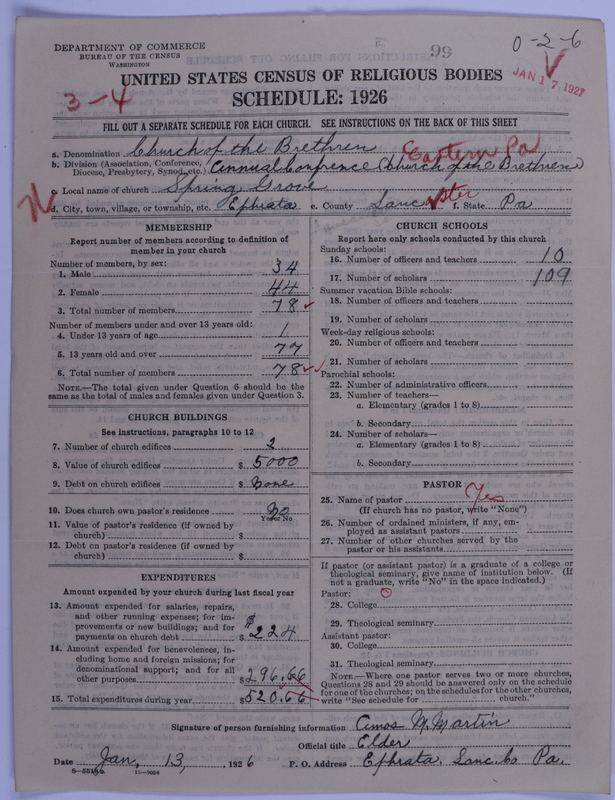 DEPARTMENT OF COMMERCE
BUREAU OF THE CENSUS
WASHINGTON
99
0-2-6
JAN 17 1927
3-4
UNITED STATES CENSUS OF RELIGIOUS BODIES
SCHEDULE: 1926
FILL OUT A SEPARATE SCHEDULE FOR EACH CHURCH. SEE INSTRUCTIONS ON THE BACK OF THIS SHEET
a. Denomination Church of the Brethren Eastern Pa
b. Division (Association, Conference, Diocese, Presbytery, Synod, etc.) Annual Confrence (Church of the Brethren)
c. Local name of church Spring Grove
d. City, town, village, or township, etc. Ephrata e. County Lancaster f. State Pa
MEMBERSHIP
Report number of members according to definition of
member in your church
Number of members, by sex:
1. Male 34
2. Female 44
3. Total number of members 78
Number of members under and over 13 years old:
4. Under 13 years of age 1
5. 13 years old and over 77
6. Total number of members 78
NOTE.—The total given under Question 6 should be the
same as the total of males and females given under Question 3.
CHURCH BUILDINGS
See instructions, paragraphs 10 to 12
7. Number of church edifices 2
8. Value of church edifices $ 5000
9. Debt on church edifices $ None
10. Does church own pastor's residence No
Yes or No
11. Value of pastor's residence (if owned by
church) $
12. Debt on pastor's residence (if owned by
church) $
EXPENDITURES
Amount expended by your church during last fiscal year
13. Amount expended for salaries, repairs,
and other running expenses; for im-
provements or new buildings; and for
payments on church debt $ 224
14. Amount expended for benevolences, in-
cluding home and foreign missions; for
denominational support; and for all
other purposes $ 296.66
15. Total expenditures during year $ 520.66
CHURCH SCHOOLS
Report here only schools conducted by this church
Sunday schools:
16. Number of officers and teachers 10
17. Number of scholars 109
Summer vacation Bible schools:
18. Number of officers and teachers
19. Number of scholars
Week-day religious schools:
20. Number of officers and teachers
21. Number of scholars
Parochial schools:
22. Number of administrative officers
23. Number of teachers—
a. Elementary (grades 1 to 8)
b. Secondary
24. Number of scholars—
a. Elementary (grades 1 to 8)
b. Secondary
PASTOR
25. Name of pastor Yes
(If church has no pastor, write "None")
26. Number of ordained ministers, if any, em-
ployed as assistant pastors
27. Number of other churches served by the
pastor or his assistants
If pastor (or assistant pastor) is a graduate of a college or
theological seminary, give name of institution below. (If
not a graduate, write "No" in the space indicated.)
Pastor:
28. College
29. Theological seminary
Assistant pastor:
30. College
31. Theological seminary
NOTE.—Where one pastor serves two or more churches,
Questions 28 and 29 should be answered only on the schedule
for one of the churches; on the schedules for the other churches,
write "See schedule for church."
Signature of person furnishing information Amos M. Martin
Official title Elder
Date Jan, 13, 1926 P. O. Address Ephrata. Lanc. Co Pa.
11—9054